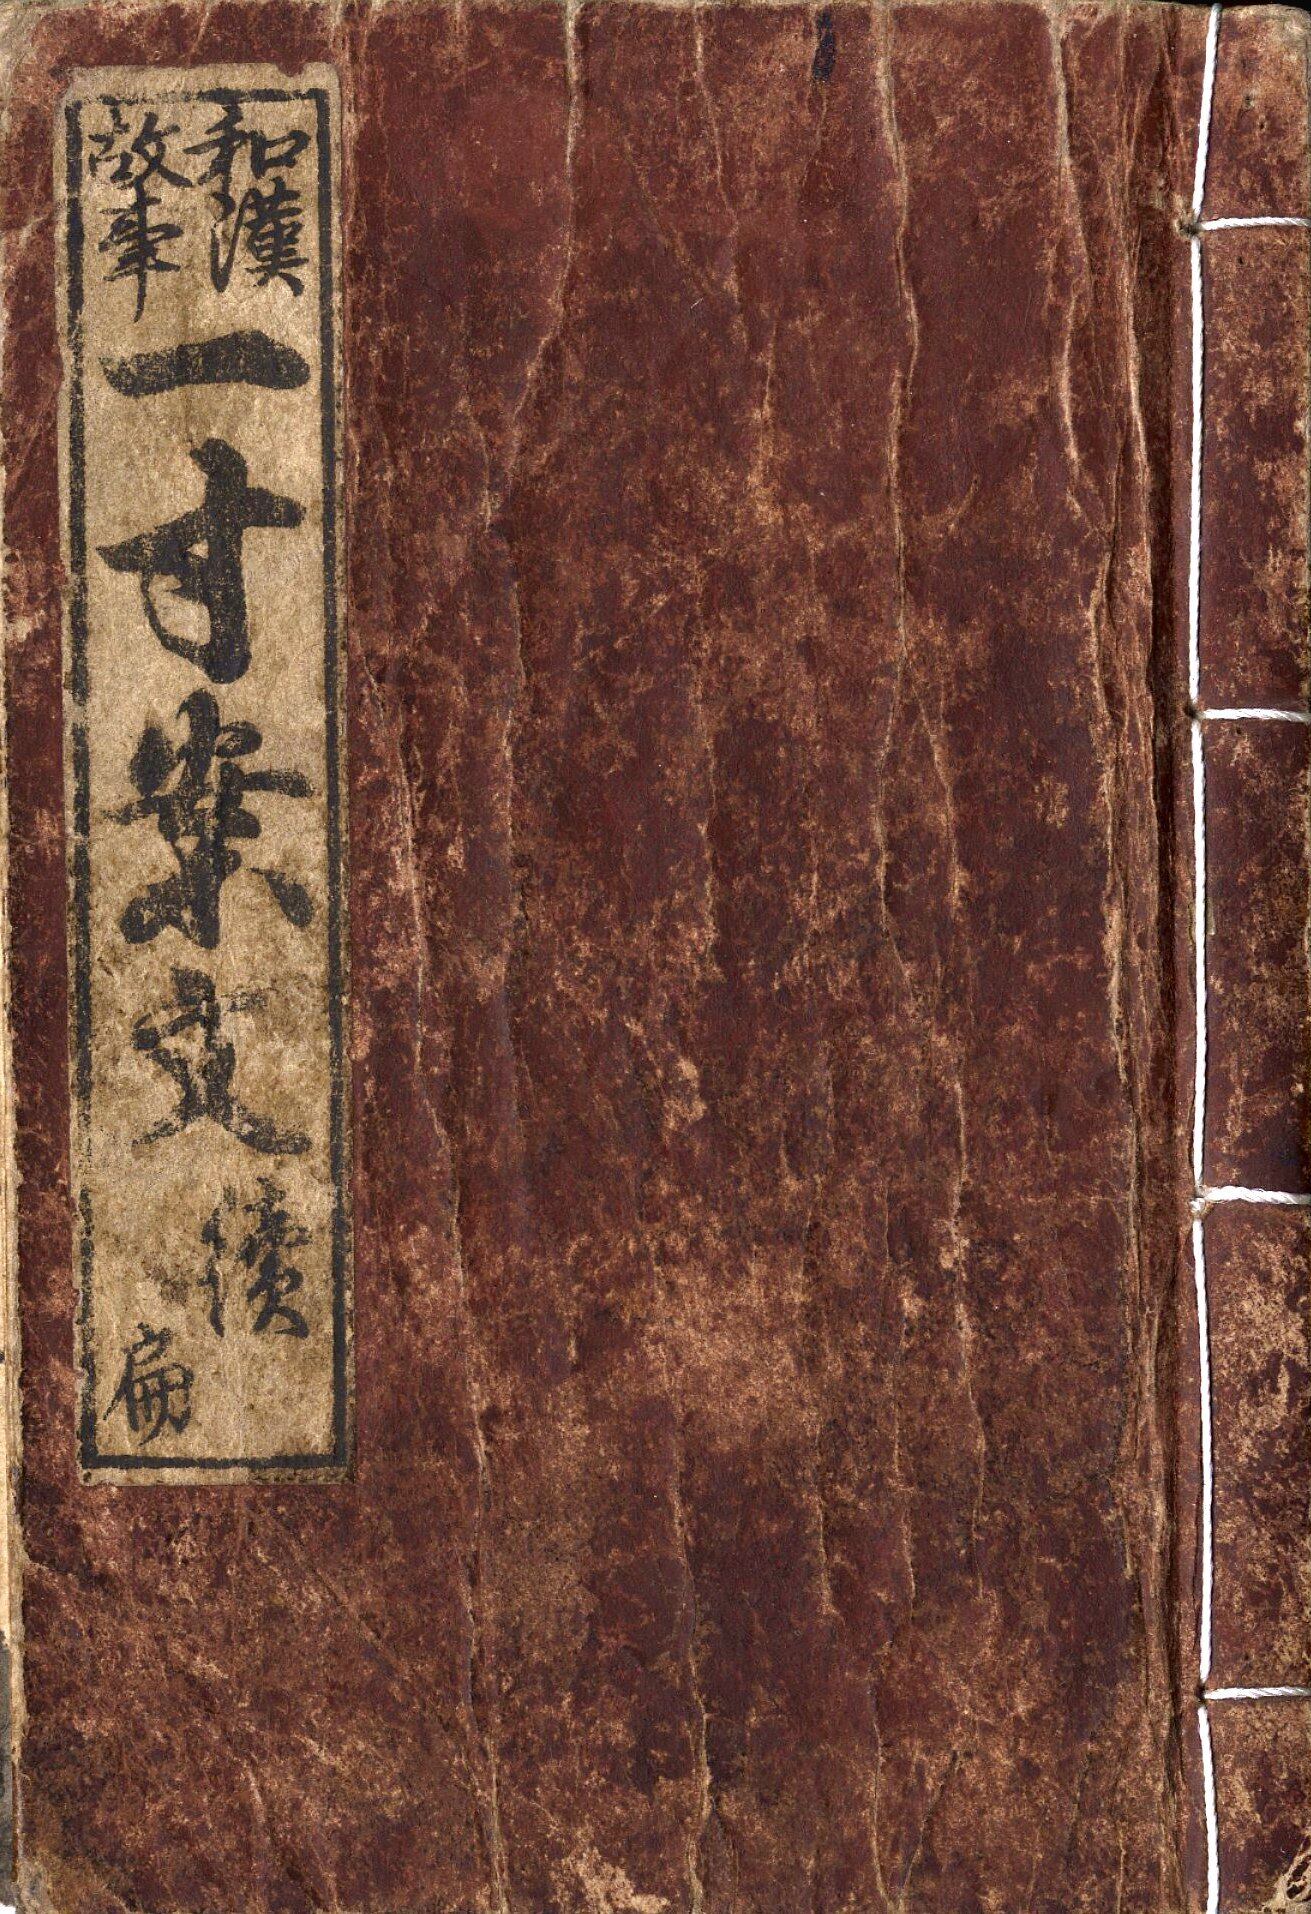 和漢
故事
一寸案文
續
扁